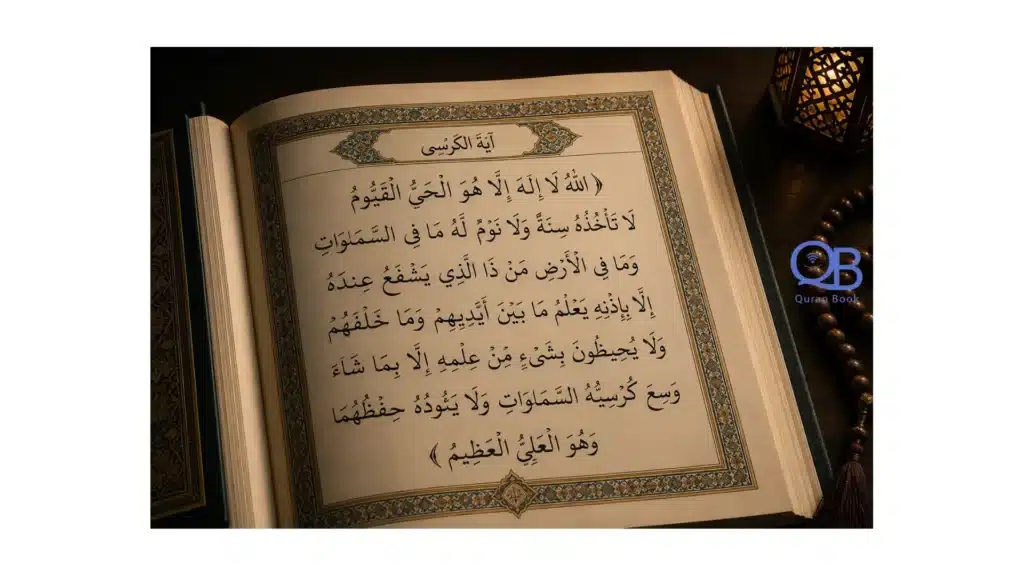 آيَةُ الكَرْسِى
﴿ اللهُ لَا إِلَهَ إِلَّا هُوَ الْحَيُّ الْقَيُّومُ
لَا تَأْخُذُهُ سِنَةٌ وَلَا نَوْمٌ لَّهُ مَا فِي السَّمَاوَاتِ
وَمَا فِي الْأَرْضِ مَنْ ذَا الَّذِي يَشْفَعُ عِندَهُ
إِلَّا بِإِذْنِهِ يَعْلَمُ مَا بَيْنَ أَيَّدِيهِمْ وَمَا خَلْفَهُمْ
وَلَا يُحِيظُونَ بِشَىْءٍ مِّنْ عِلْمِهِ إِلَّا بِمَا شَاءَ
وَسِعَ كُرْسِيُّهُ السَّمَاوَاتِ وَلَا يَئُودُهُ حِفْظُهُمَا
وَهُوَ الْعَلِيُّ الْعَظِيمُ ﴾
QB
Quran Book